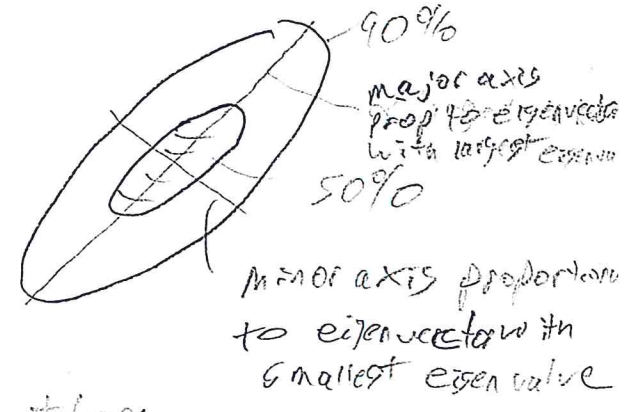 90%
major axis
prop to eigenvector
with largest eigenv
50%
minor axis proportion
to eigenvector with
smallest eigenvalue